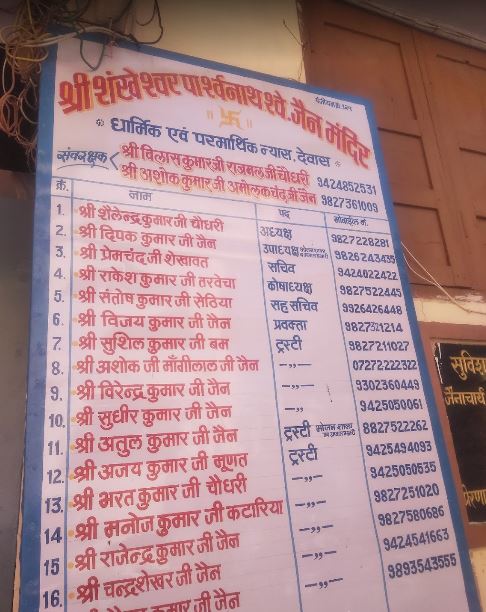 श्री शंखेश्वर पार्श्वनाथ श्वे. जैन मंदिर
* धार्मिक एवं परमार्थिक न्यास, देवास *
संरक्षक < श्री विलासकुमारजी राजमलजी चौधरी 9424852531
श्री अशोककुमारजी अमोलकचंदजी जैन 9827361009
क्रं. नाम पद मोबाईल नं.
1. श्री शैलेन्द्रकुमार जी चौधरी अध्यक्ष 9827228281
2. श्री दिपक कुमार जी जैन उपाध्यक्ष 9826243435
3. श्री प्रेमचंद जी शेखावत सचिव 9424022422
4. श्री राकेश कुमार जी तरवेचा कोषाध्यक्ष 9827522445
5. श्री संतोष कुमार जी सेठिया सह सचिव 9926426448
6. श्री विजय कुमार जी जैन प्रवक्ता 9827321214
7. श्री सुशिल कुमार जी बम ट्रस्टी 9827211027
8. श्री अशोक जी माँगीलाल जी जैन -,,- 07272222322
9. श्री विरेन्द्र कुमार जी जैन -,,- 9302360449
10. श्री सुधीर कुमार जी जैन -,, 9425050061
11. श्री अतुल कुमार जी जैन ट्रस्टी भोजन शाला 8827522262
12. श्री अजय कुमार जी मूणत ट्रस्टी 9425494093
13. श्री भरत कुमार जी चौधरी -,,- 9425050535
14 श्री मनोज कुमार जी कटारिया -,,- 9827251020
15 श्री राजेन्द्र कुमार जी जैन -,,- 9827580686
16. श्री चन्द्रशेखर जी जैन -,,- 9424541663
-,,- 9893543555
सुविश
जैनाचार्य